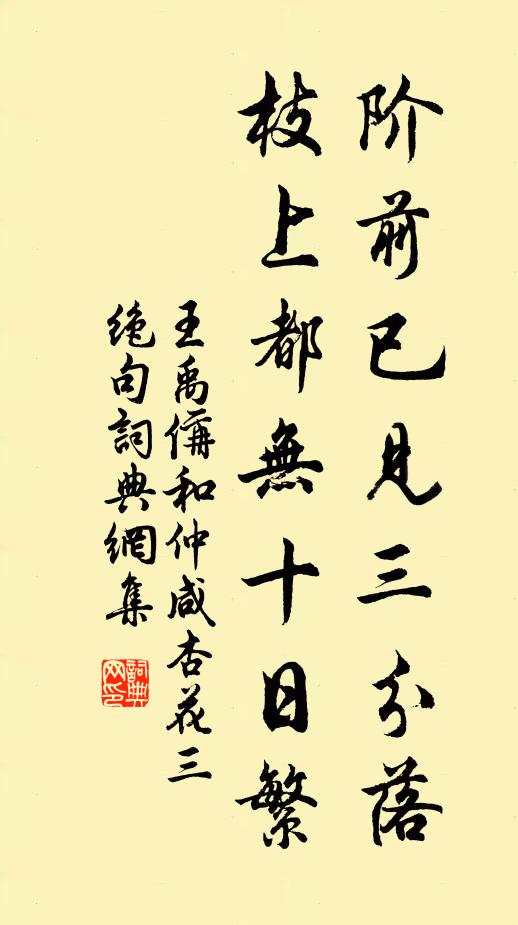 阶前已见三分落
枝上都無十日繁
王禹偁和仲咸杏花三
絶句詞典網集
詞典网印